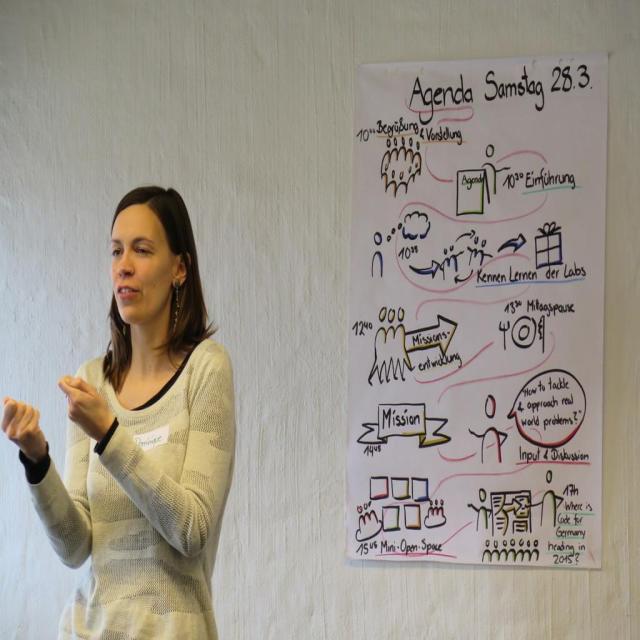 Agenda Samstag 28.3.
10⁰⁰ Begrüßung & Vorstellung
Agenda
10³⁰ Einführung
Kennen Lernen der Labs
12⁴⁰
Missions-
entwicklung
13³⁰ Mittagspause
Mission
14⁴⁵
"How to tackle
& approach real
world problems?"
Input & Diskussion
15⁴⁵ Mini-Open-Space
17h
Where is
Code for
Germany
heading in
2015?